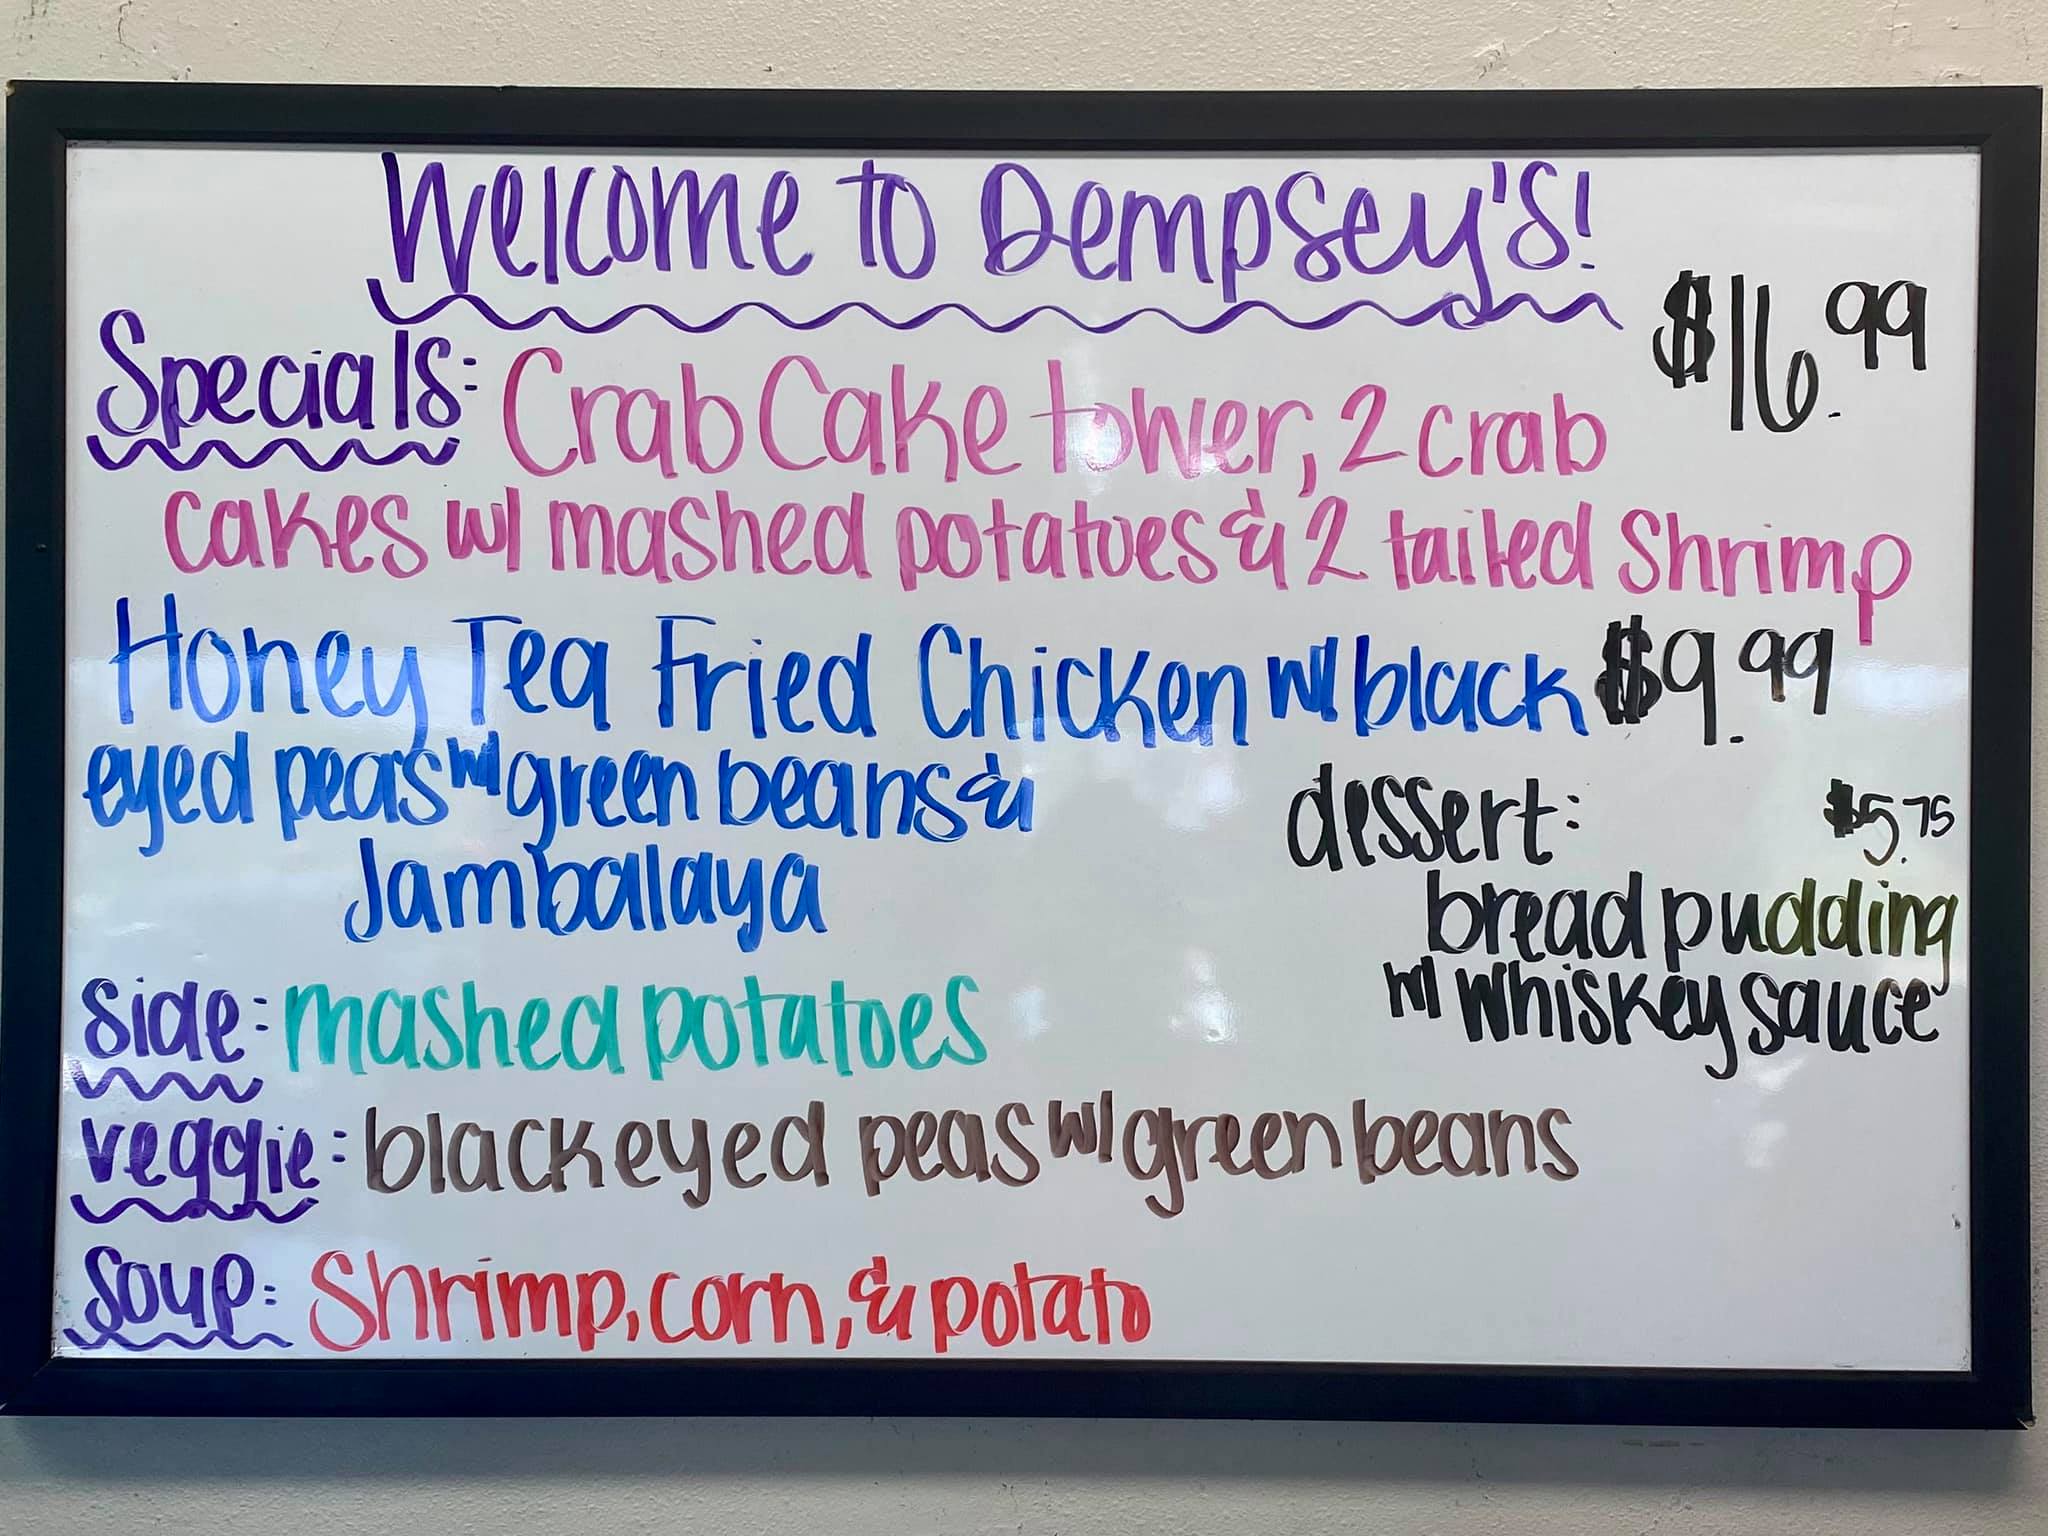 Welcome to Dempsey's!
Specials: Crab Cake tower, 2 crab $16.99
cakes w/ mashed potatoes & 2 tailed shrimp
Honey Tea Fried Chicken w/ black $9.99
eyed peas w/ green beans &
Jambalaya
dessert: $5.75
bread pudding
w/ whiskey sauce
side: mashed potatoes
veggie: blackeyed peas w/ green beans
Soup: Shrimp, corn, & potato